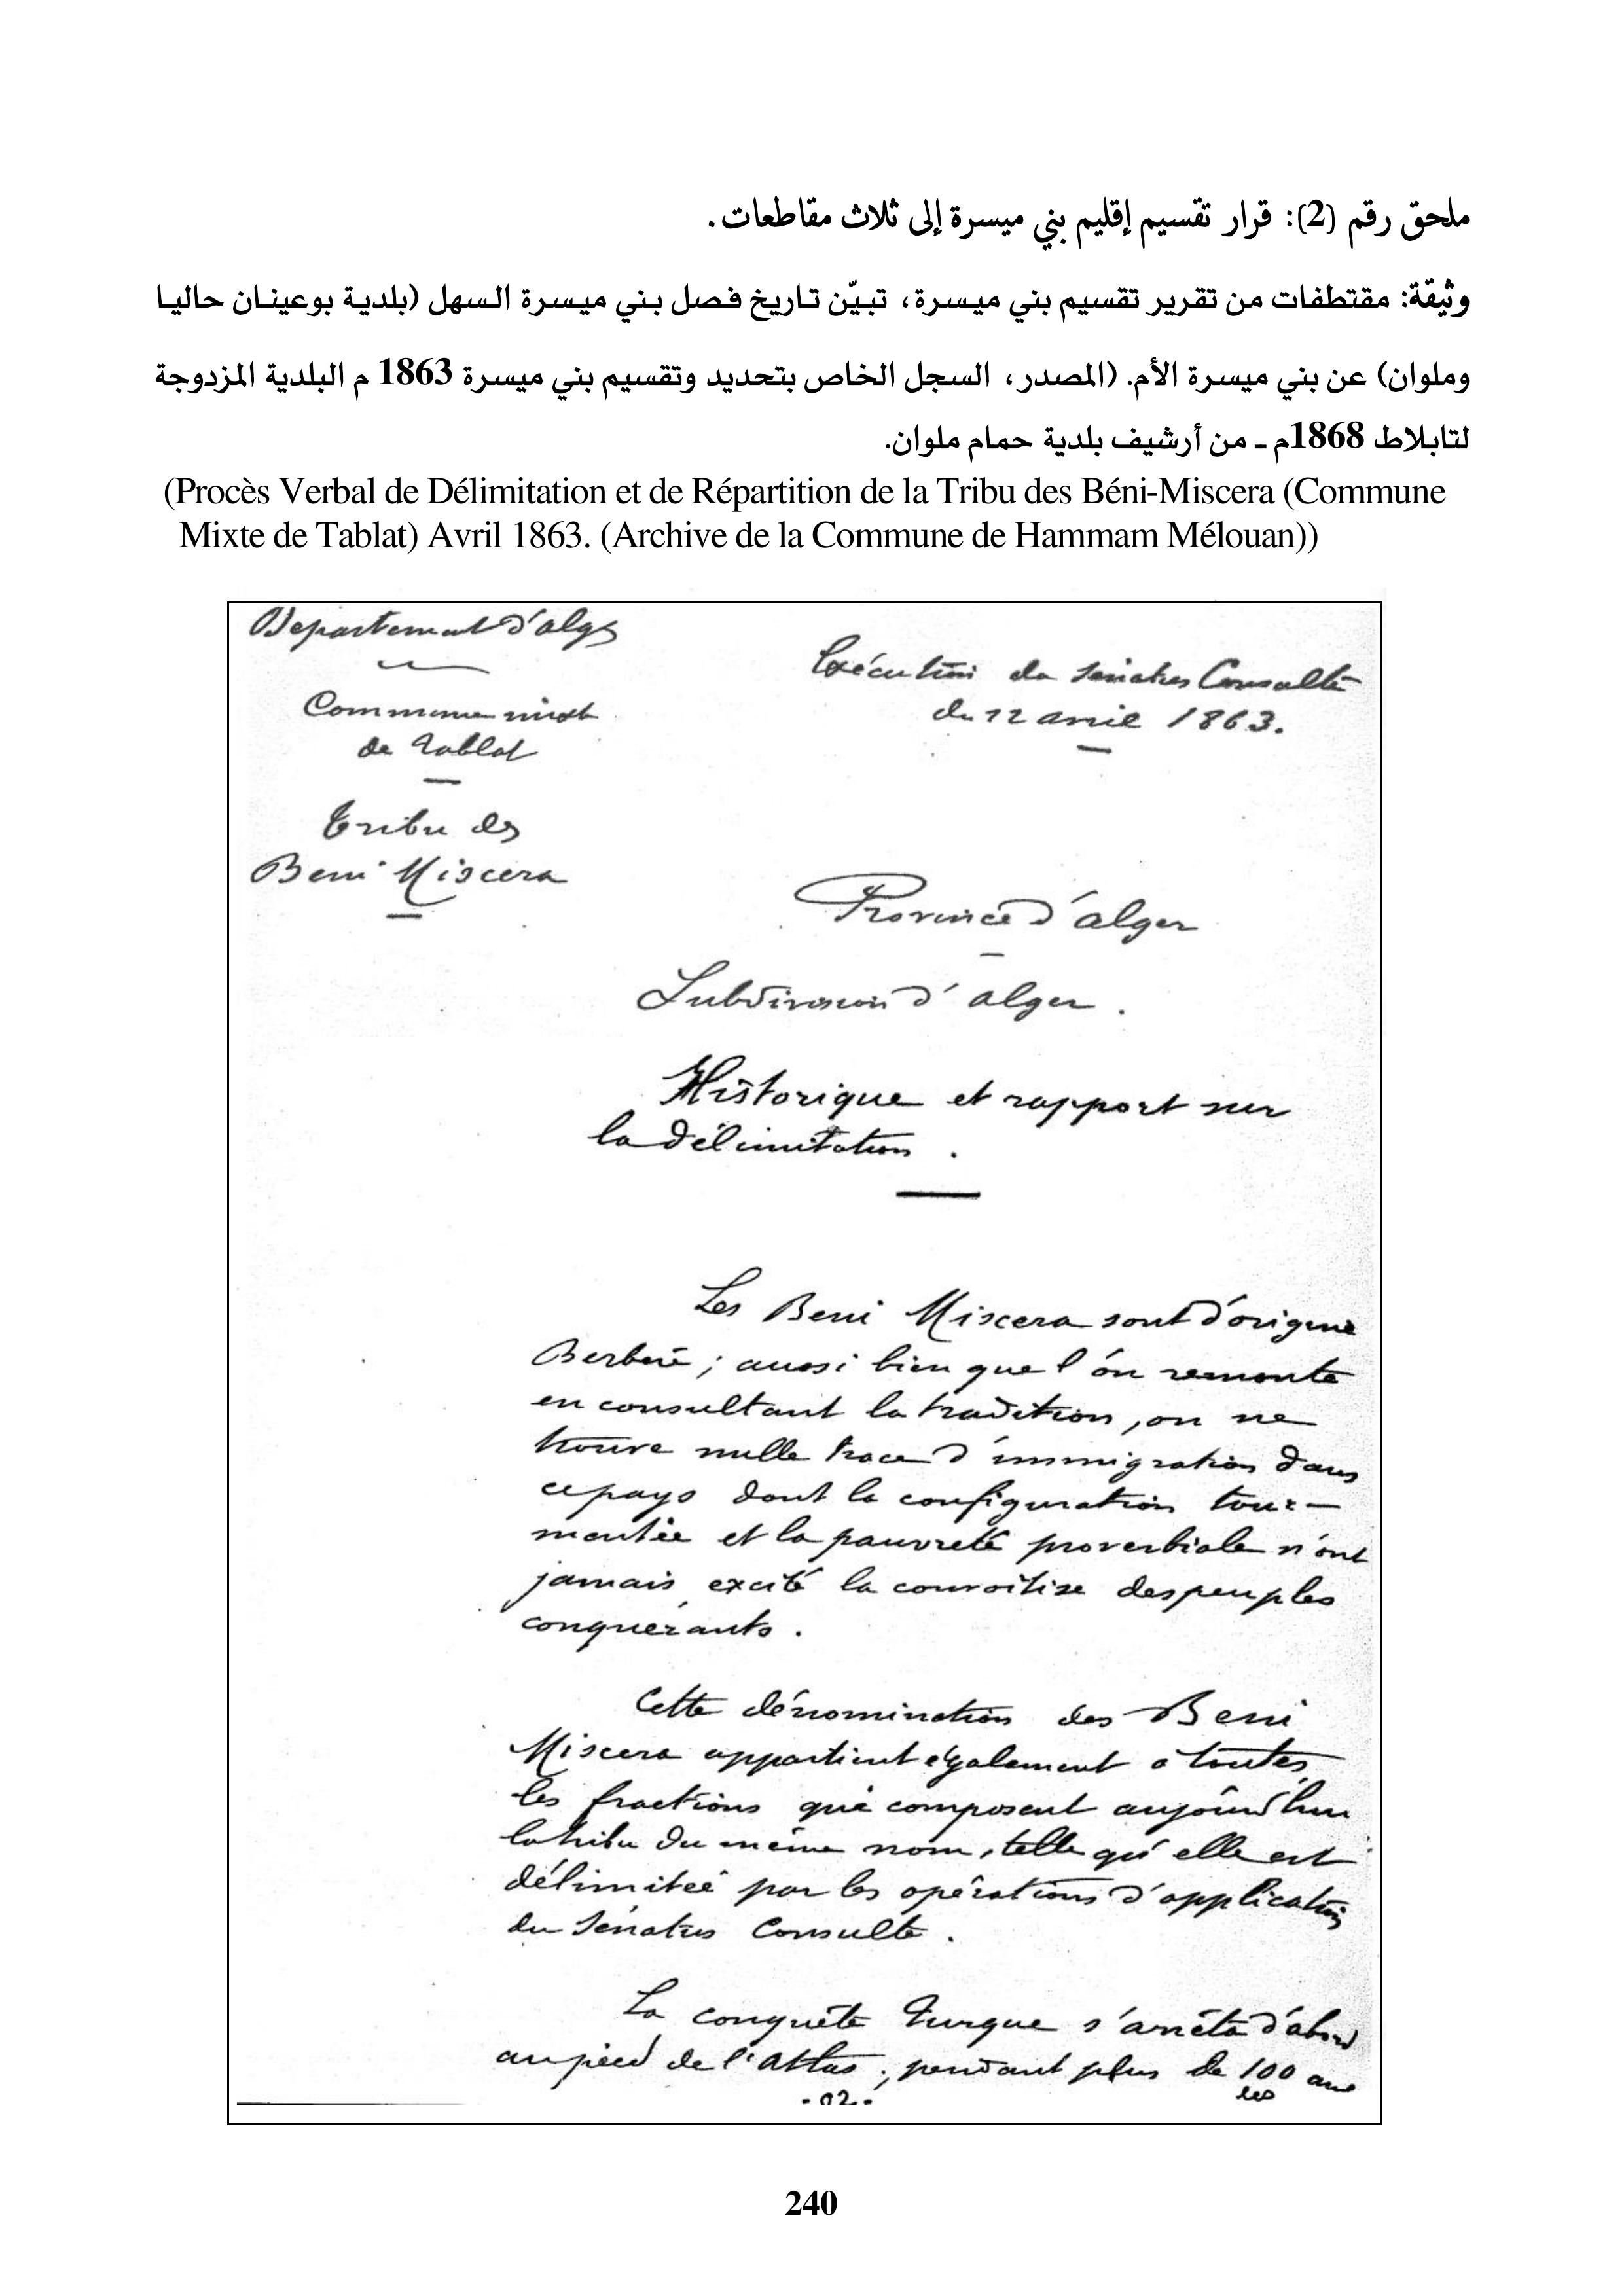 ملحق رقم (2): قرار تقسيم إقليم بني ميسرة إلى ثلاث مقاطعات.
وثيقة: مقتطفات من تقرير تقسيم بني ميسرة، تبيّن تاريخ فصل بني ميسرة السهل (بلدية بوعينان حاليا
وملوان) عن بني ميسرة الأم. (المصدر، السجل الخاص بتحديد وتقسيم بني ميسرة 1863 م البلدية المزدوجة
لتابلاط 1868م ـ من أرشيف بلدية حمام ملوان.
(Procès Verbal de Délimitation et de Répartition de la Tribu des Béni-Miscera (Commune
Mixte de Tablat) Avril 1863. (Archive de la Commune de Hammam Mélouan))
Departement d'alger
Commune mixte
de Tablat
Tribu des
Beni Miscera
Exécution du Sénatus Consulte
du 22 avril 1863.
Province d'alger
Subdivision d'alger.
Historique et rapport sur
la délimitation.
Les Beni Miscera sont d'origine
Berbère; aussi bien que l'on remonte
en consultant la tradition, on ne
trouve nulle trace d'immigration dans
ce pays dont la configuration tour-
mentée et la pauvreté proverbiale n'ont
jamais excité la convoitise des peuples
conquérants.
Cette dénomination des Beni
Miscera appartient également à toutes
les fractions qui composent aujourd'hui
la tribu du même nom, telle qu'elle est
délimitée par les opérations d'application
du Sénatus Consulte.
La conquête Turque s'arrêta d'abord
au pied de l'Atlas; pendant plus de 100 ans
les
-02-
240